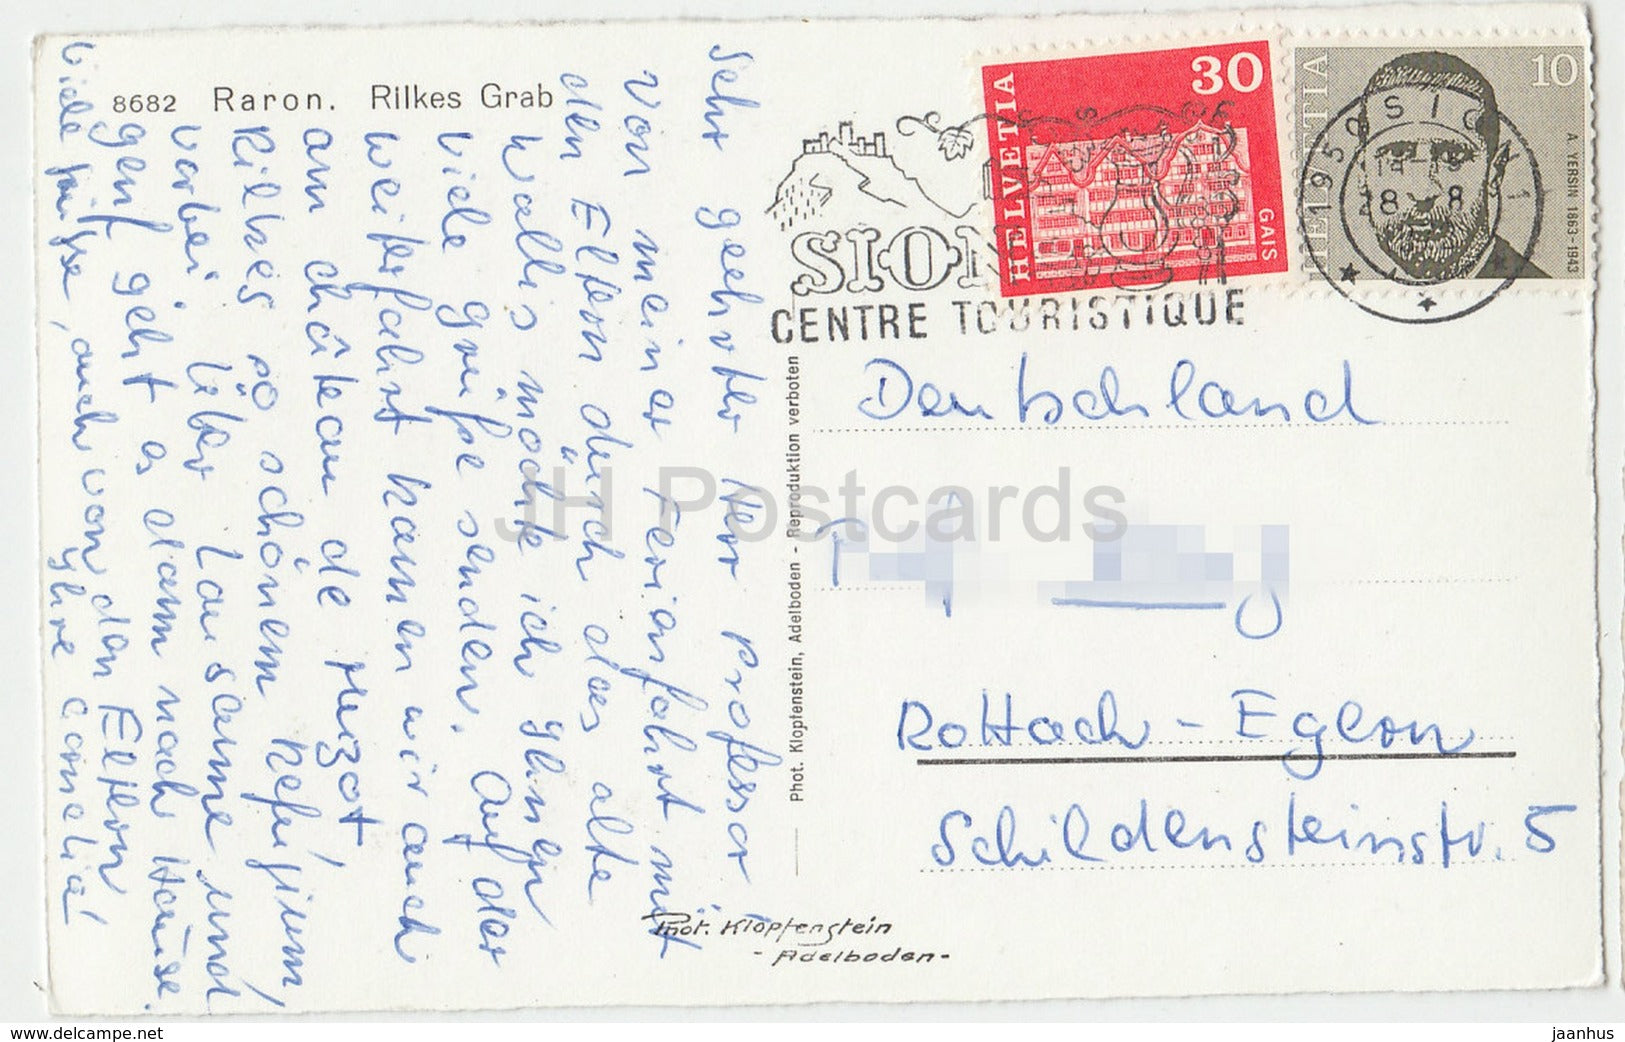 8682 Raron. Rilkes Grab
Sehr geehrter Herr Professor!
Von meiner Ferienfahrt mit
den Eltern durch das alte
Wallis möchte ich Ihnen
viele Grüße senden. Auf der
Weiterfahrt kamen wir auch
am château de Muzot
Rilkes so schönem Refugium,
vorbei. Über Lausanne und
Genf geht es dann nach Hause.
Viele Grüsse, auch von den Eltern
Ihre Cornelia!
HELVETIA
30
GAIS
HELVETIA
10
A. YERSIN 1863-1943
1950 SION 1
28 -8
SION
CENTRE TOURISTIQUE
Deutschland
Rottach-Egern
Schildensteinstr. 5
Phot. Klopfenstein, Adelboden - Reproduktion verboten
Phot. Klopfenstein
- Adelboden -
JH Postcards
www.delcampe.net
jaanhus